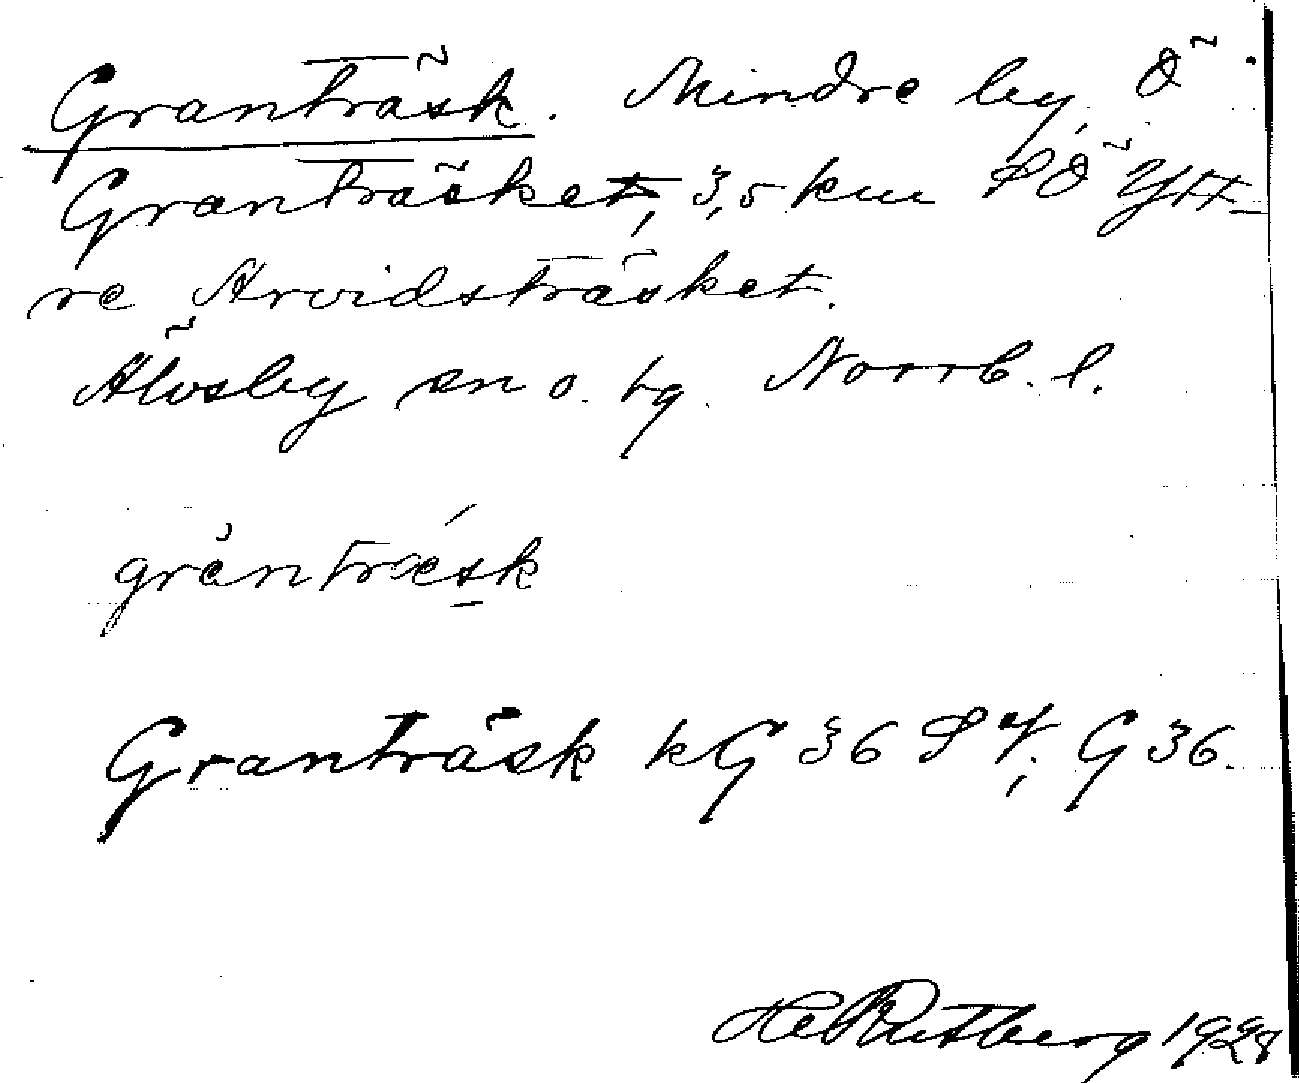 Granträsk. Mindre by, Ö.
Granträsket, 3,5 km SÖ Ytt-
re Arvidsträsket.
Älvsby sn o. tg. Norrb. l.
gränträsk
Granträsk kG 36 S V; G 36.
Rutberg 1928